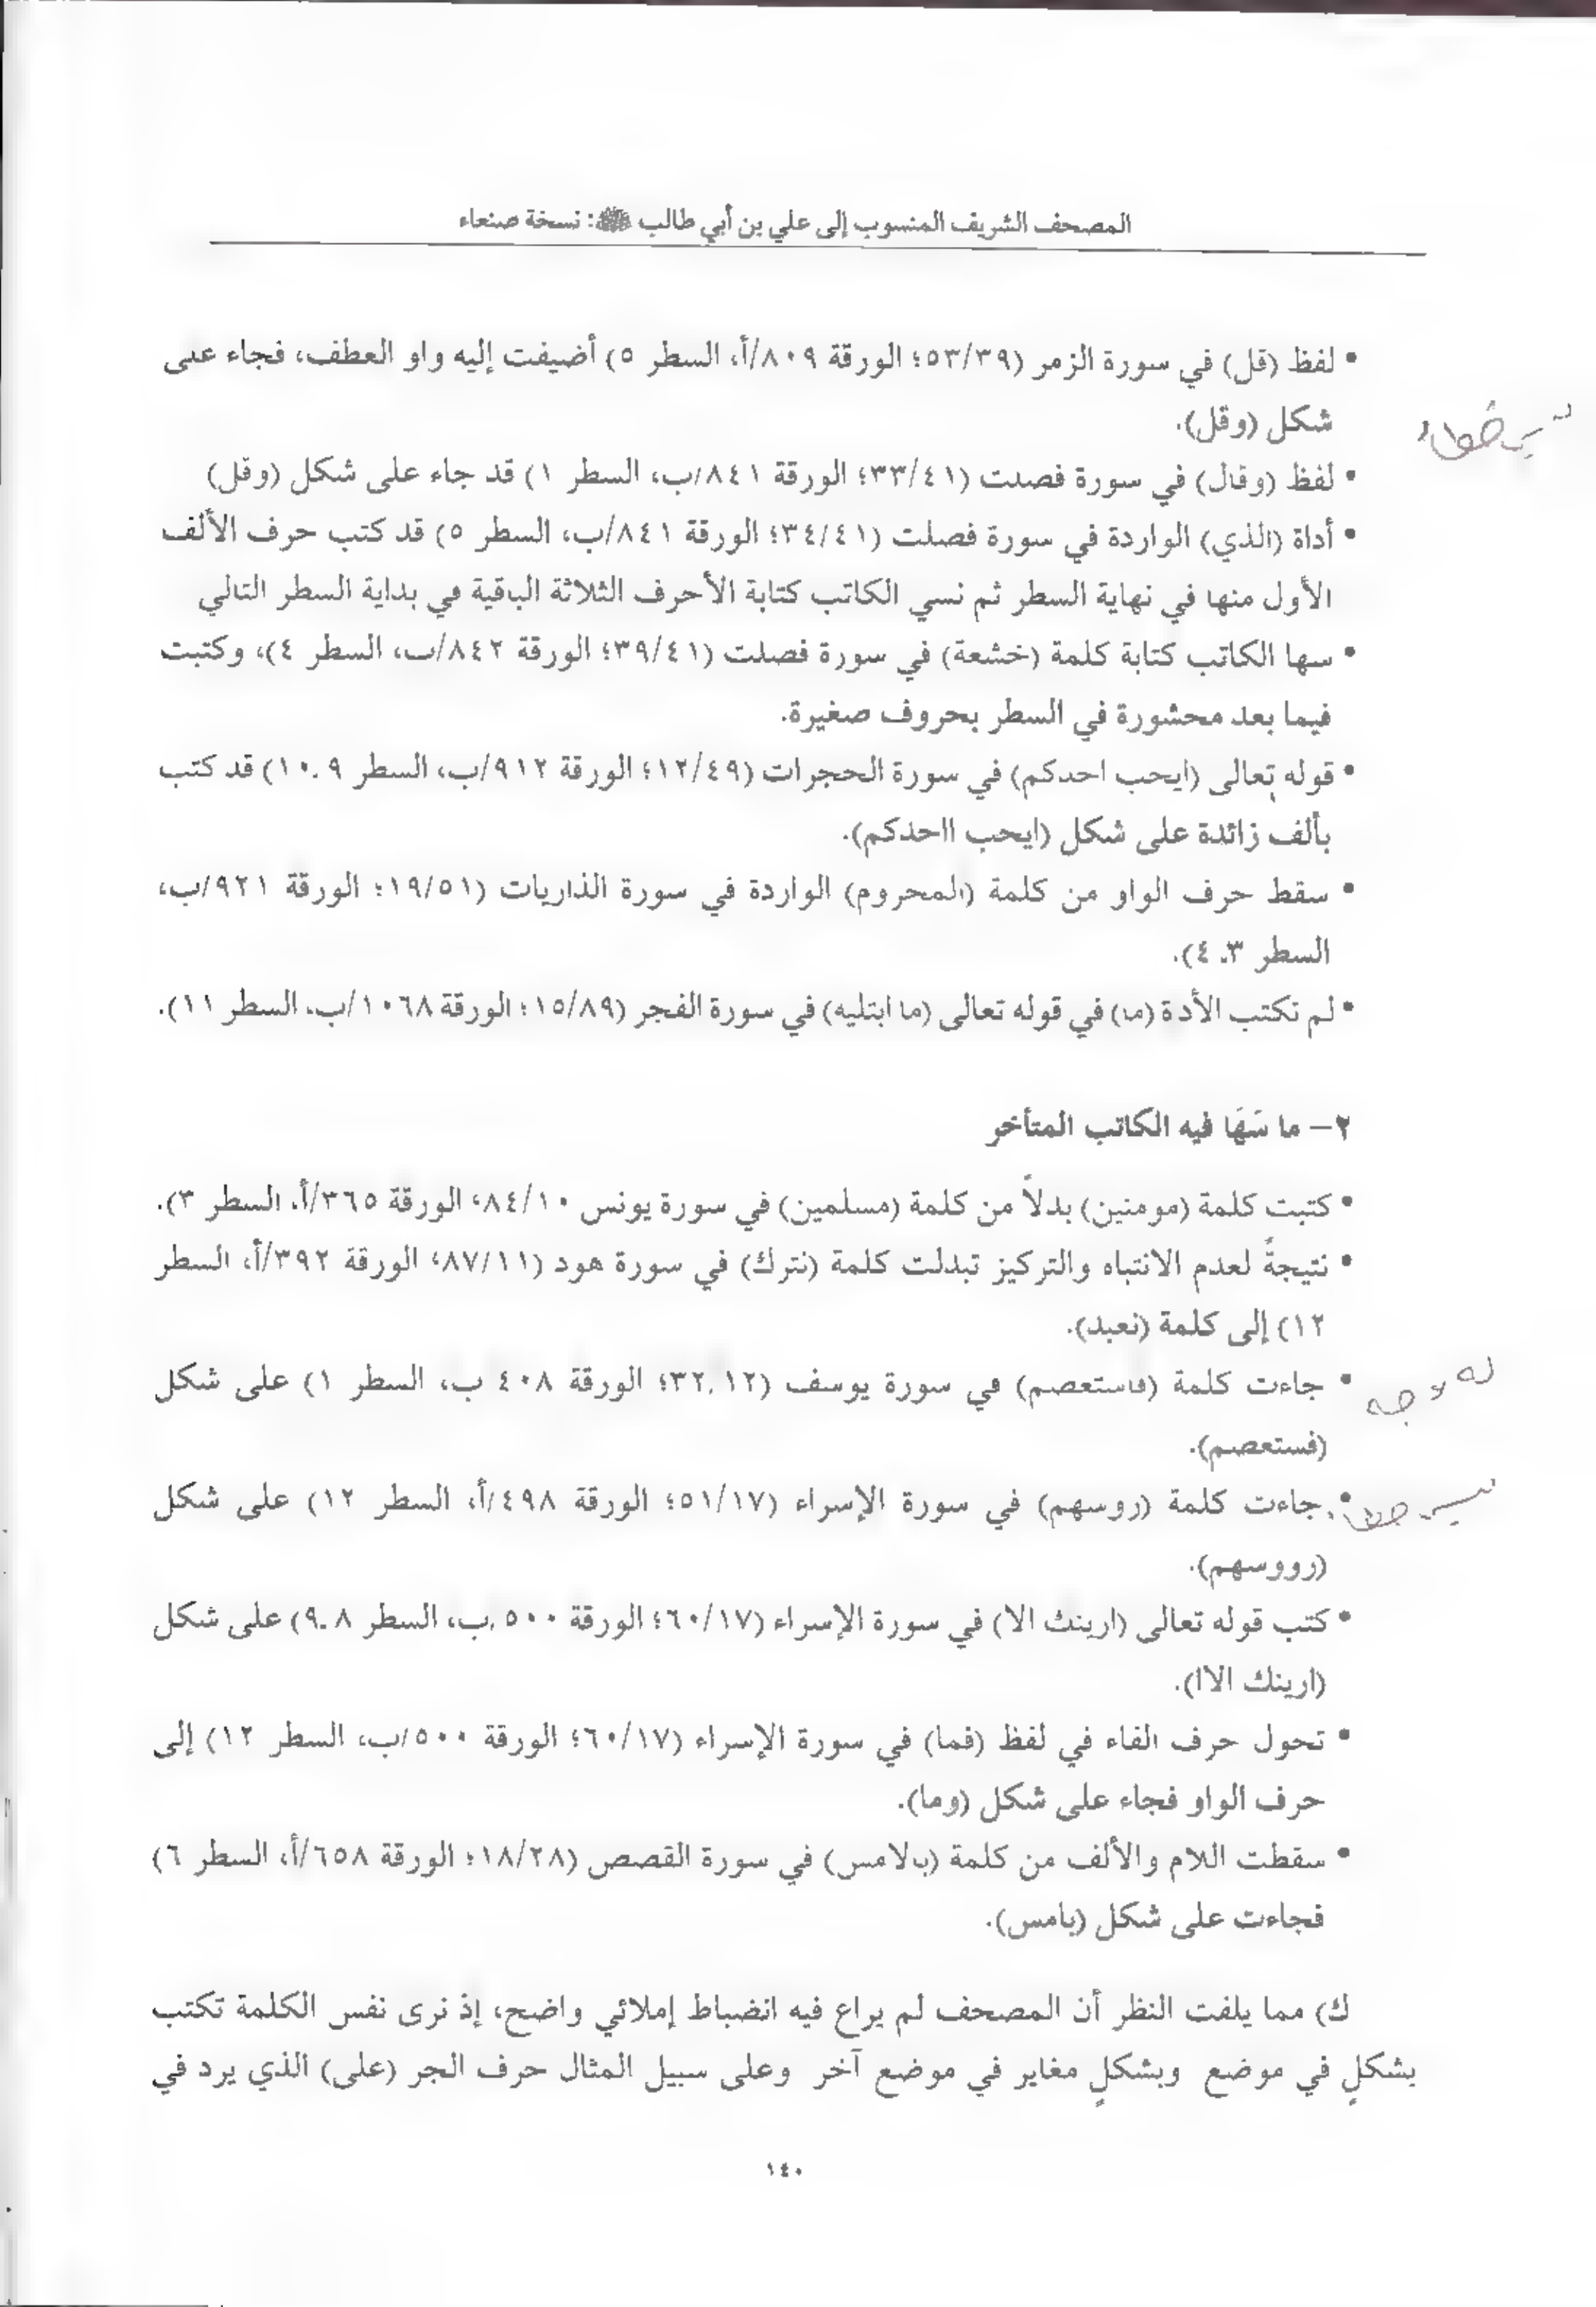 المصحف الشريف المنسوب إلى علي بن أبي طالب ﷺ: نسخة صنعاء
• لفظ (قل) في سورة الزمر (٥٣/٣٩؛ الورقة ٨٠٩/أ، السطر ٥) أضيفت إليه واو العطف، فجاء على
شكل (وقل).
• لفظ (وقال) في سورة فصلت (٣٣/٤١؛ الورقة ٨٤١/ب، السطر ١) قد جاء على شكل (وقل)
• أداة (الذي) الواردة في سورة فصلت (٣٤/٤١؛ الورقة ٨٤١/ب، السطر ٥) قد كتب حرف الألف
الأول منها في نهاية السطر ثم نسي الكاتب كتابة الأحرف الثلاثة الباقية في بداية السطر التالي
• سها الكاتب كتابة كلمة (خشعة) في سورة فصلت (٣٩/٤١؛ الورقة ٨٤٢/ب، السطر ٤)، وكتبت
فيما بعد محشورة في السطر بحروف صغيرة.
• قوله تعالى (ايحب احدكم) في سورة الحجرات (١٢/٤٩؛ الورقة ٩١٢/ب، السطر ٩ـ١٠) قد كتب
بألف زائدة على شكل (ايحب ااحدكم).
• سقط حرف الواو من كلمة (المحروم) الواردة في سورة الذاريات (١٩/٥١؛ الورقة ٩٢١/ب،
السطر ٣ـ٤).
• لم تكتب الأدة (ما) في قوله تعالى (ما ابتليه) في سورة الفجر (١٥/٨٩؛ الورقة ١٠٦٨/ب، السطر ١١).
٢– ما سَهَا فيه الكاتب المتأخر
• كتبت كلمة (مومنين) بدلاً من كلمة (مسلمين) في سورة يونس ٨٤/١٠؛ الورقة ٣٦٥/أ، السطر ٣).
• نتيجةً لعدم الانتباه والتركيز تبدلت كلمة (نترك) في سورة هود (٨٧/١١؛ الورقة ٣٩٢/أ، السطر
١٢) إلى كلمة (نعبد).
له وجه
• جاءت كلمة (فاستعصم) في سورة يوسف (٣٢.١٢؛ الورقة ٤٠٨ ب، السطر ١) على شكل
(فستعصم).
• جاءت كلمة (روسهم) في سورة الإسراء (٥١/١٧؛ الورقة ٤٩٨/أ، السطر ١٢) على شكل
(رووسهم).
• كتب قوله تعالى (ارينك الا) في سورة الإسراء (٦٠/١٧؛ الورقة ٥٠٠.ب، السطر ٨ـ٩) على شكل
(ارينك الاا).
• تحول حرف الفاء في لفظ (فما) في سورة الإسراء (٦٠/١٧؛ الورقة ٥٠٠/ب، السطر ١٢) إلى
حرف الواو فجاء على شكل (وما).
• سقطت اللام والألف من كلمة (بالامس) في سورة القصص (١٨/٢٨؛ الورقة ٦٥٨/أ، السطر ٦)
فجاءت على شكل (بامس).
ك) مما يلفت النظر أن المصحف لم يراع فيه انضباط إملائي واضح، إذ نرى نفس الكلمة تكتب
بشكلٍ في موضع وبشكلٍ مغاير في موضع آخر وعلى سبيل المثال حرف الجر (على) الذي يرد في
١٤٠